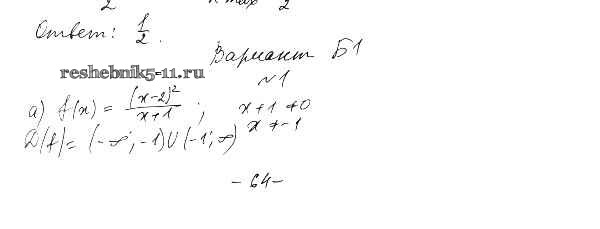 2 k max 2
Ответ: 1/2.
Вариант Б1
reshebnik5-11.ru
№1
а) f(x) = (x-2)²/x+1 ; x+1≠0
x≠-1
D(f)= (-∞; -1)U(-1; ∞)
-64-